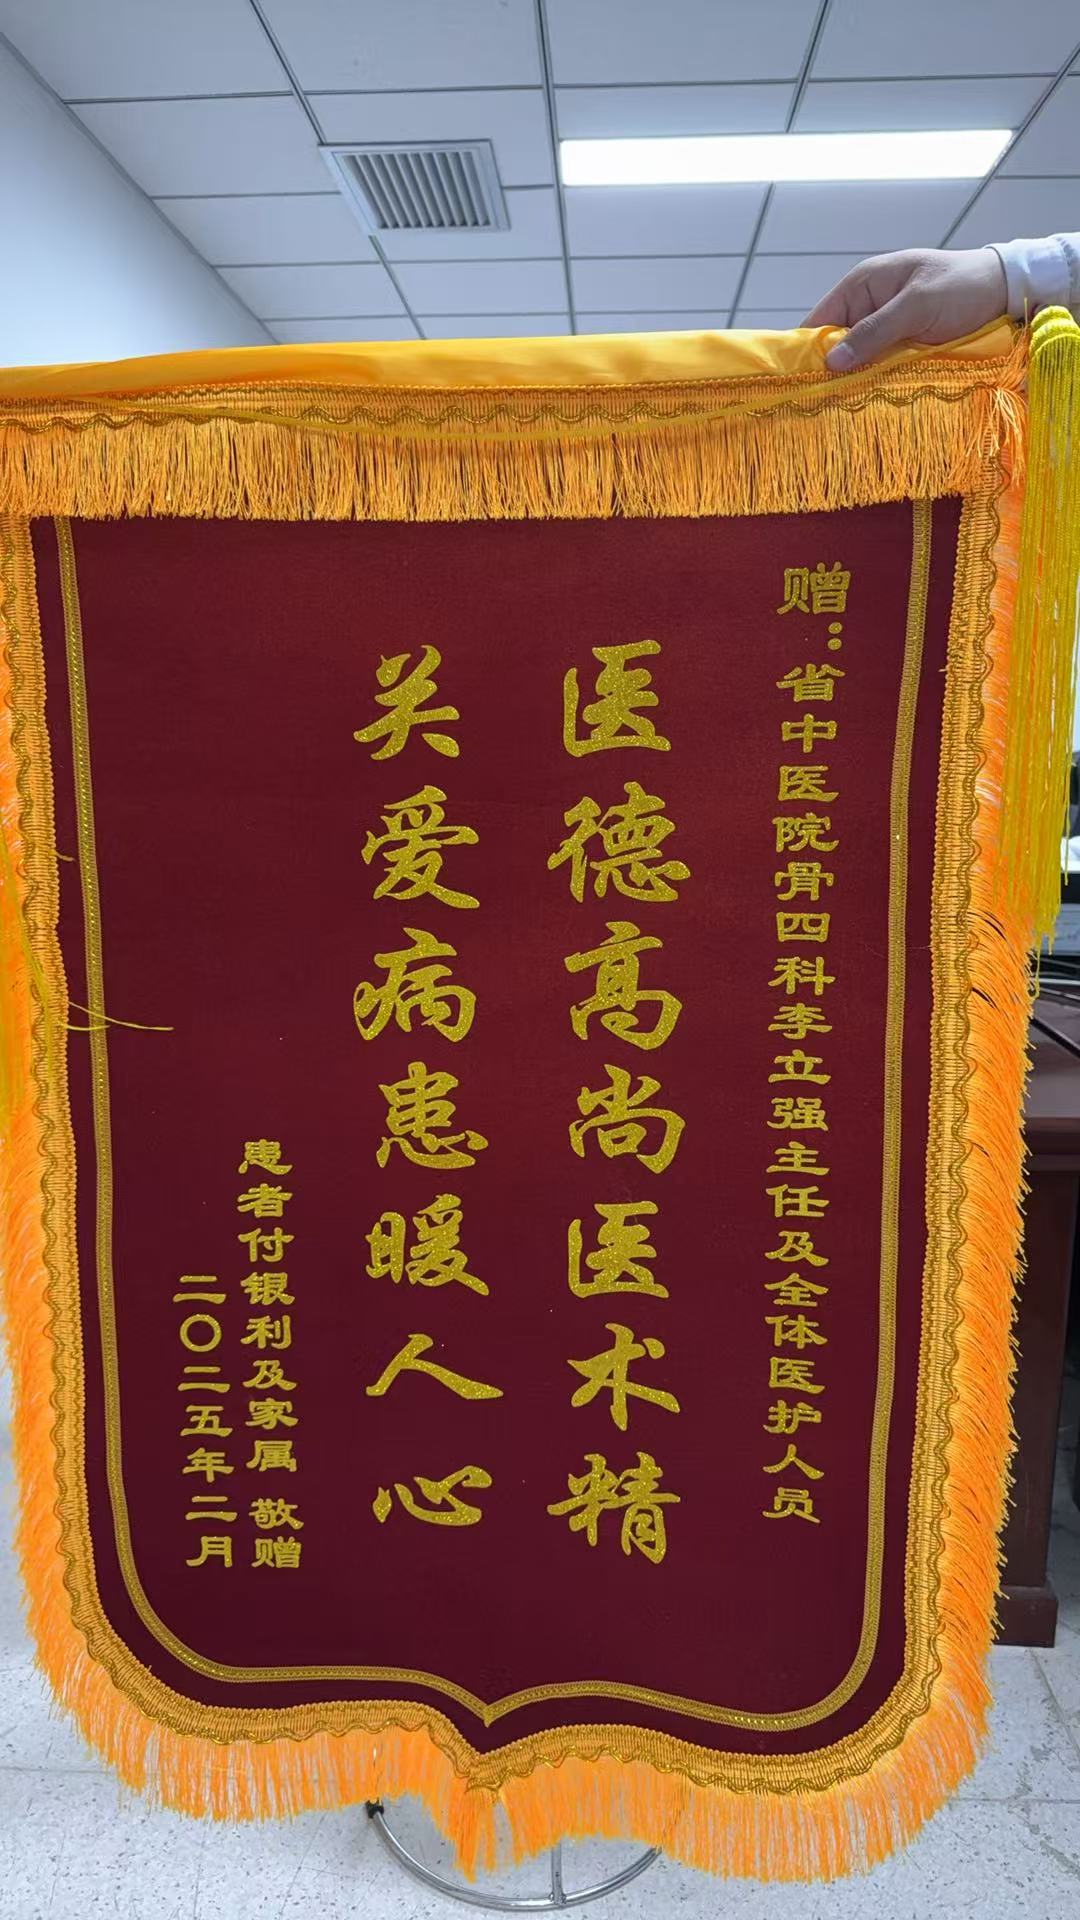 赠：省中医院骨四科李立强主任及全体医护人员
医德高尚医术精
关爱病患暖人心
患者付银利及家属 敬赠
二〇二五年二月